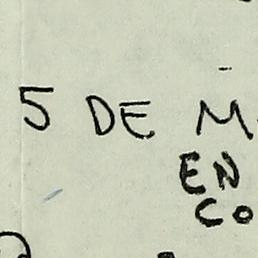 5 DE M
EN
CO